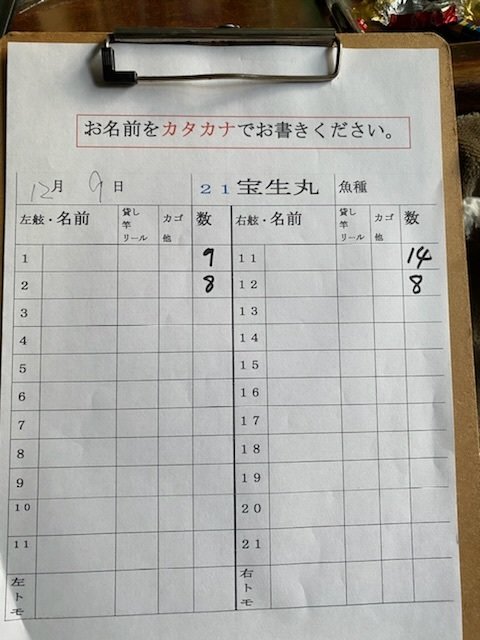 お名前をカタカナでお書きください。
12月 9日 21宝生丸 魚種
左舷・名前 貸し竿リール カゴ他 数 右舷・名前 貸し竿リール カゴ他 数
1 9 11 14
2 8 12 8
3 13
4 14
5 15
6 16
7 17
8 18
9 19
10 20
11 21
左トモ 右トモ